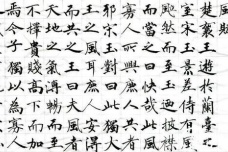 風賦
楚襄王遊於蘭臺之
宮宋玉景差侍有風
颯然而至王迺披襟
而當之曰快哉此風
寡人所與庶人共者
邪宋玉對曰此獨大
王之風耳庶人安得
而共之王曰夫風者
天地之氣溥暢而至
不擇貴賤高下而加
焉今子獨以為寡人